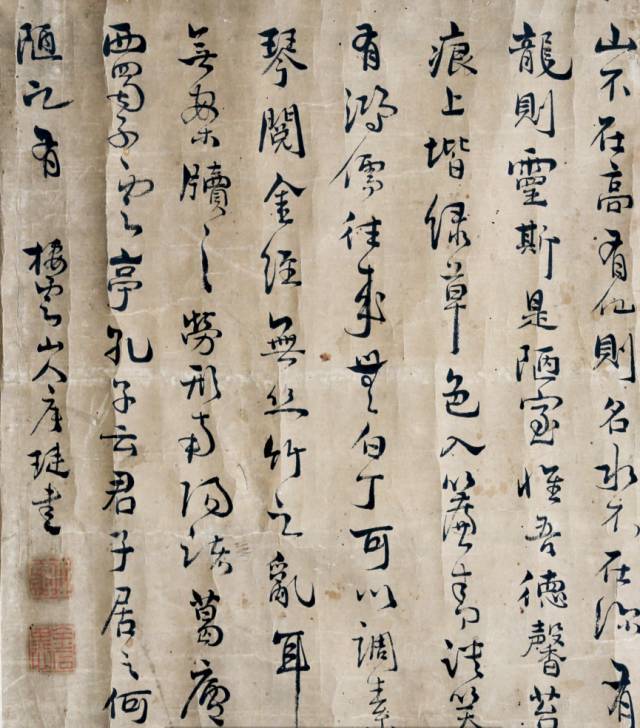 山不在高有仙則名水不在深有
龍則靈斯是陋室惟吾德馨苔
痕上堦緑草色入簾青談笑
有鴻儒往來無白丁可以調素
琴閱金經無絲竹之亂耳
無案牘之勞形南陽諸葛廬
西蜀子雲亭孔子云君子居之何
陋之有
棲雲山人唐璉書